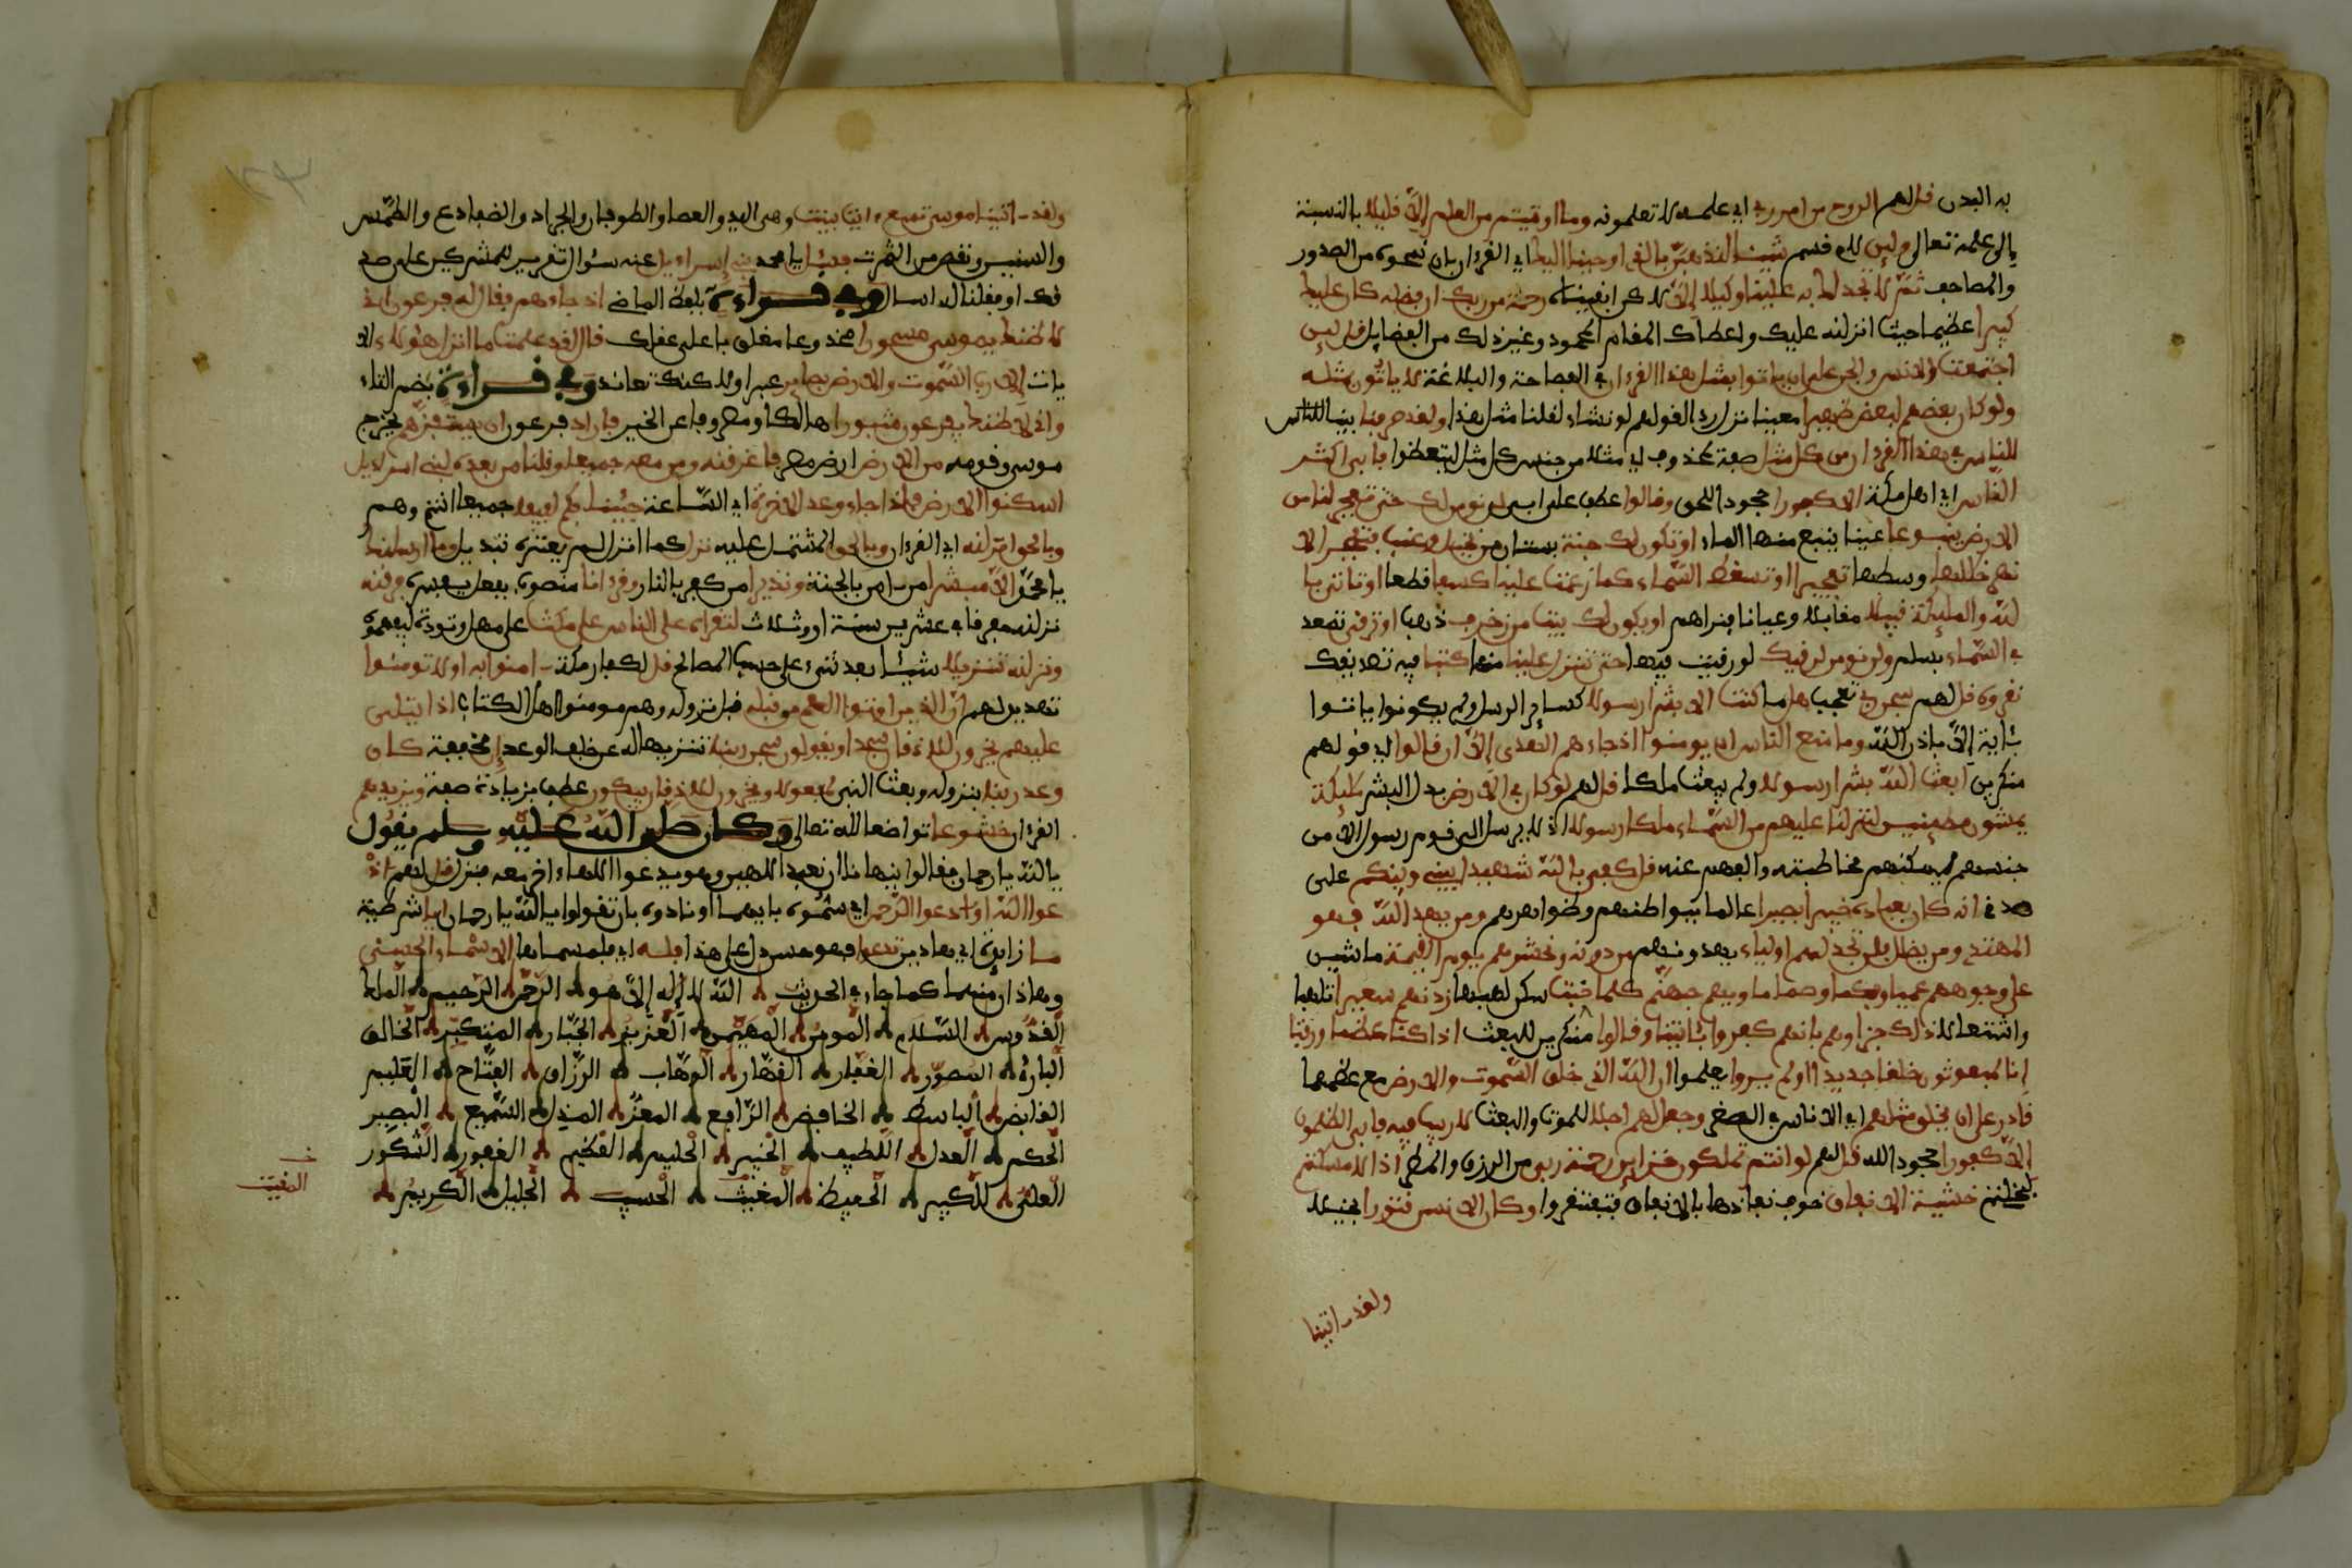 به البدن قل لهم الروح من امر ربي اي علمه لا تعلمونه وما اوتيتم من العلم إلا قليلا بالنسبة
إلى علمه تعالى ولئن لام قسم شينا لنذهبن بالذي اوحينا إليك اي القرءان بان نمحوه من الصدور
والمصاحف ثم لا تجد لك به علينا وكيلا إلا لاكن ابقيناه رحمة من ربك ان فضله كان عليك
كبيرا عظيما حيث انزله عليك واعطاك المقام المحمود وغير ذلك من الفضايل قل لئن
اجتمعت الانس والجن على ان ياتوا بمثل هذا القرءان في الفصاحة والبلاغة لا ياتون بمثله
ولو كان بعضهم لبعض ظهيرا معينا نزل ردا لقولهم لو نشاء لقلنا مثل هذا ولقد صرفنا بينا للناس
للناس في هذا القرءان من كل مثل صفة لمحذوف اي مثلا من جنس كل مثل ليتعظوا فابى اكثر
الناس اي اهل مكة الا كفورا جحودا للحق وقالوا عطف على ابى لن نومن لك حتى تفجر لنا من
الارض ينبوعا عينا ينبع منها الماء او تكون لك جنة بستان من نخيل وعنب فتفجر الا
نهر خللها وسطها تفجيرا او تسقط السماء كما زعمت علينا كسفا قطعا او تاتي با
لله والمليكة قبيلا مقابلا وعيانا فنراهم او يكون لك بيت من زخرف ذهب او ترقى تصعد
في السماء بسلم ولن نومن لرقيك لو رقيت فيها حتى تنزل علينا منها كتبا فيه تصديقك
نقروه قل لهم سبحن ربي تعجب هل ما كنت الا بشرا رسولا كساير الرسل ولم يكونوا ياتوا
بئاية إلا باذن الله وما منع الناس ان يومنوا اذ جاءهم الهدى إلا ان قالوا اي قولهم
منكرين ابعث الله بشرا رسولا ولم يبعث ملكا قل لهم لو كان في الارض بدل البشر مليكة
يمشون مطمئنين لنزلنا عليهم من السماء ملكا رسولا اذ لا يرسل الى قوم رسول الا من
جنسهم ليمكنهم مخاطبته والفهم عنه قل كفى بالله شهيدا بيني وبينكم على
صدقي انه كان بعباده خبيرا بصيرا عالما ببواطنهم وظواهرهم ومن يهد الله فهو
المهتد ومن يضلل فلن تجد لهم اولياء يهدونهم من دونه ونحشرهم يوم القيمة ماشين
على وجوههم عميا وبكما وصما ماويهم جهنم كلما خبت سكن لهبها زدنهم سعيرا تلهبا
واشتعالا ذلك جزاوهم بانهم كفروا بئايتنا وقالوا منكرين للبعث اذا كنا عظما ورفتا
إنا لمبعوثون خلقا جديدا اولم يروا يعلموا ان الله الذي خلق السموت والارض مع عظمهما
قادر على ان يخلق مثلهم اي الاناس في الصغر وجعل لهم اجلا للموت والبعث لا ريب فيه فابى الظلمون
إلا كفورا جحودا له قل لهم لو انتم تملكون خزاين رحمة ربي من الرزق والمطر اذا لامسكتم
لبخلتم خشية الانفاق خوف نفادها بالانفاق فتفتقروا وكان الانسن قتورا بخيلا
ولقد اتينا
ولقد اتينا موسى تسع ءايت بينت وهي اليد والعصا والطوفان والجراد والضفادع والطمس
والسنين ونقص من الثمرت فسئل يا محمد بني إسراءيل عنه سئوال تقرير للمشركين على صد
قك او فقلنا له اسال وفي قراءة بلفظ الماضي اذ جاءهم فقال له فرعون إني
لاظنك يموسى مسحورا مخدوعا مغلوبا على عقلك قال لقد علمت ما انزل هؤلاء الا
يات إلا رب السموت والارض بصاير عبرا ولاكنك تعاند وفي قراءة بضم التاء
واني لاظنك يفرعون مثبورا هالكا او مصروفا عن الخير فاراد فرعون ان يستفزهم يخرج
موسى وقومه من الارض ارض مصر فاغرقنه ومن معه جميعا وقلنا من بعده لبني اسراءيل
اسكنوا الارض فاذا جاء وعد الاخرة اي الساعة جئنا بكم لفيفا جميعا انتم وهم
وبالحق انزلنه اي القرءان وبالحق المشتمل عليه نزل كما انزل لم يعتره تبديل وما ارسلنك
يا محمد الا مبشرا من امن بالجنة ونذيرا من كفر بالنار وقرءانا منصوب بفعل يفسره فرقنه
نزلنه مفرقا في عشرين سنة او وثلاث لتقراه على الناس على مكث على مهل وتودة ليفهموه
ونزلنه تنزيلا شيئا بعد شيء على حسب المصالح قل لكفار مكة امنوا به او لا تومنوا
تهديد لهم ان الذين اوتوا العلم من قبله قبل نزوله وهم مومنوا اهل الكتاب اذا يتلى
عليهم يخرون للاذقان سجدا ويقولون سبحن ربنا تنزيها له عن خلف الوعد إن مخففة كان
وعد ربنا بنزوله وبعث النبي لمفعولا ويخرون للاذقان يبكون عطف بزيادة صفة ويزيدهم
القرءان خشوعا تواضعا لله تعالى وكان صلى الله عليه وسلم يقول
يا الله يا رحمان فقالوا ينهانا ان نعبد إلاهين وهو يدعوا الاها اخر معه فنزل قل لهم اد
عوا الله او ادعوا الرحمن اي سموه بايهما او نادوه بان تقولوا يا الله يا رحمان ايا شرطية
ما زايدة اي هاذين تدعوا فهو حسن دل على هذا فله اي فلمسماهما الاسماء الحسنى
وهاذان منهما كما جاء في الحديث الله لا إله إلا هو الرحمن الرحيم الملك
القدوس السلام المومن المهيمن العزيز الجبار المتكبر الخالق
البارئ المصور الغفار القهار الوهاب الرزاق الفتاح العليم
القابض الباسط الخافض الرافع المعز المذل السميع البصير
الحكم العدل اللطيف الخبير الحليم العظيم الغفور الشكور
العلي الكبير الحفيظ المغيث الحسيب الجليل الكريم
المقيت